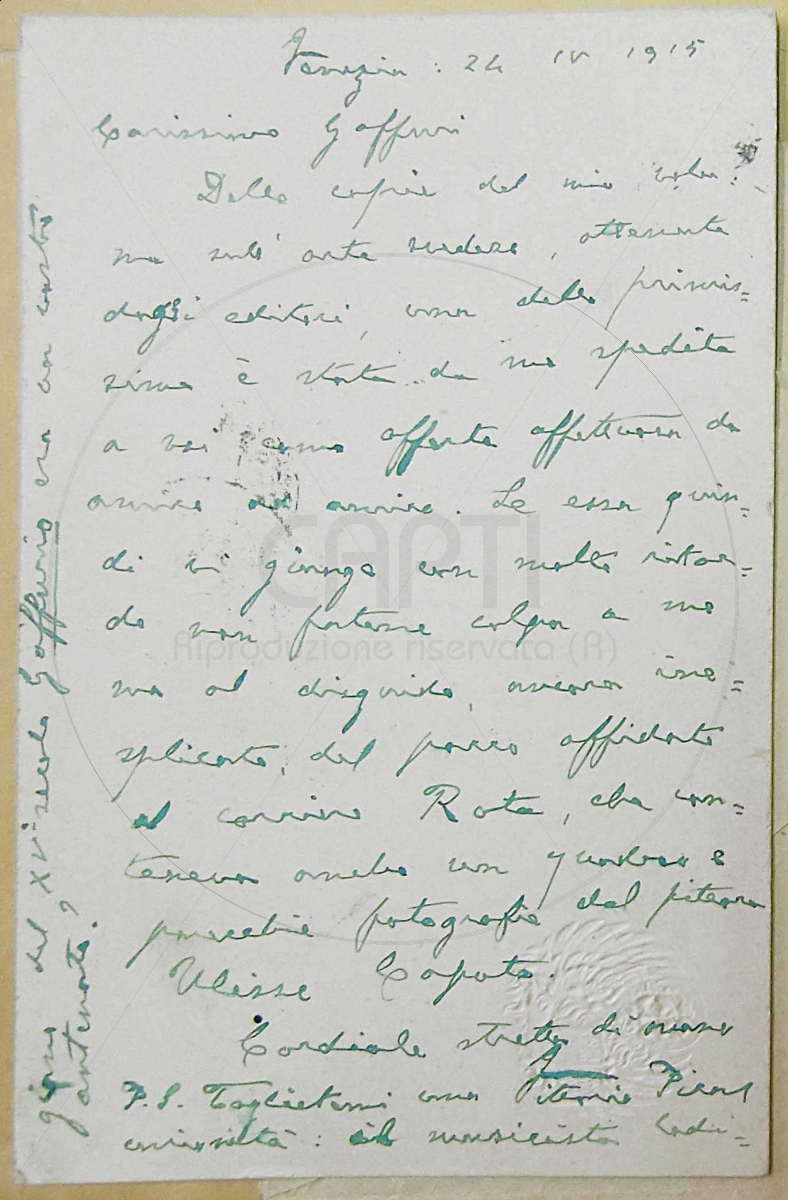 Venezia: 24 IV 1915
Carissimo Gaffuri
Delle copie del mio volu:
me sull'arte svedese, ottenute
dagli editori, una delle primis=
sime è stata da me spedita
a voi come offerta affettuosa da
amico ad amico. Se essa quin=
di vi giunge con molto ritar=
do non fatene colpa a me
ma al disguido, ancora ine=
splicato, del pacco affidato
al corriere Rota, che con=
teneva anche un quadro e
parecchie fotografie del pittore
Ulisse Caputo.
Cordiale stretta di mano
Vittorio Pica
P.S. Toglietemi una
curiosità: il musicista lodi=
giano del XV secolo Gaffurio era un vostro
antenato?
CAPTI
Riproduzione riservata (R)